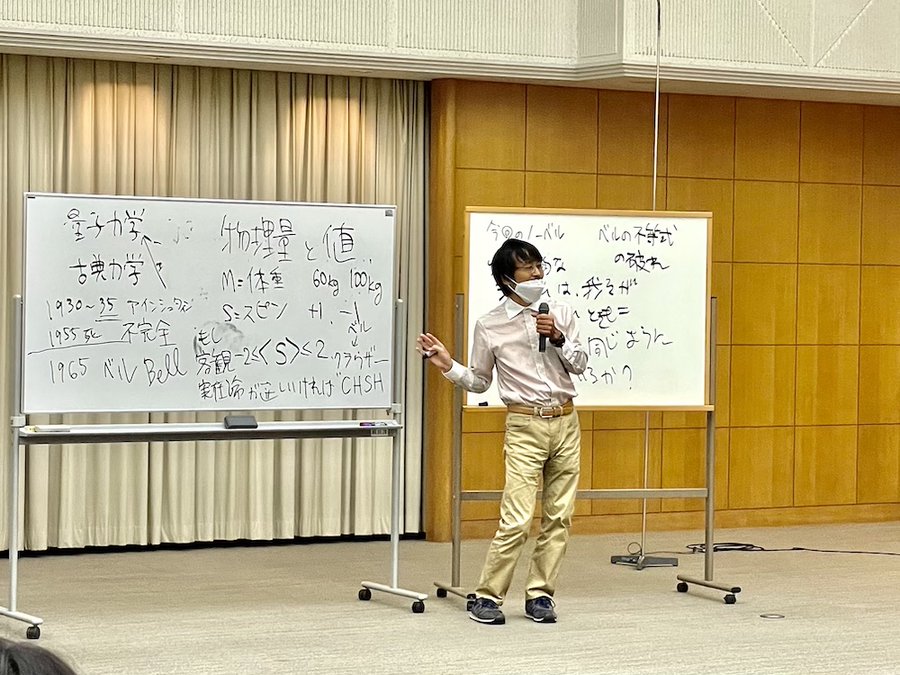 量子力学
古典力学
1930~35 アインシュタイン
1955死 不完全
1965 ベル Bell
物理量と値
M=体重 60kg 100kg
S=スピン +1, -1
ベル
もし
客観 -2≤〈S〉≤2 クラウザー
実在論が正しければ CHSH
今回のノーベル
は、我々が
同じように
るか?
ベルの不等式
の破れ